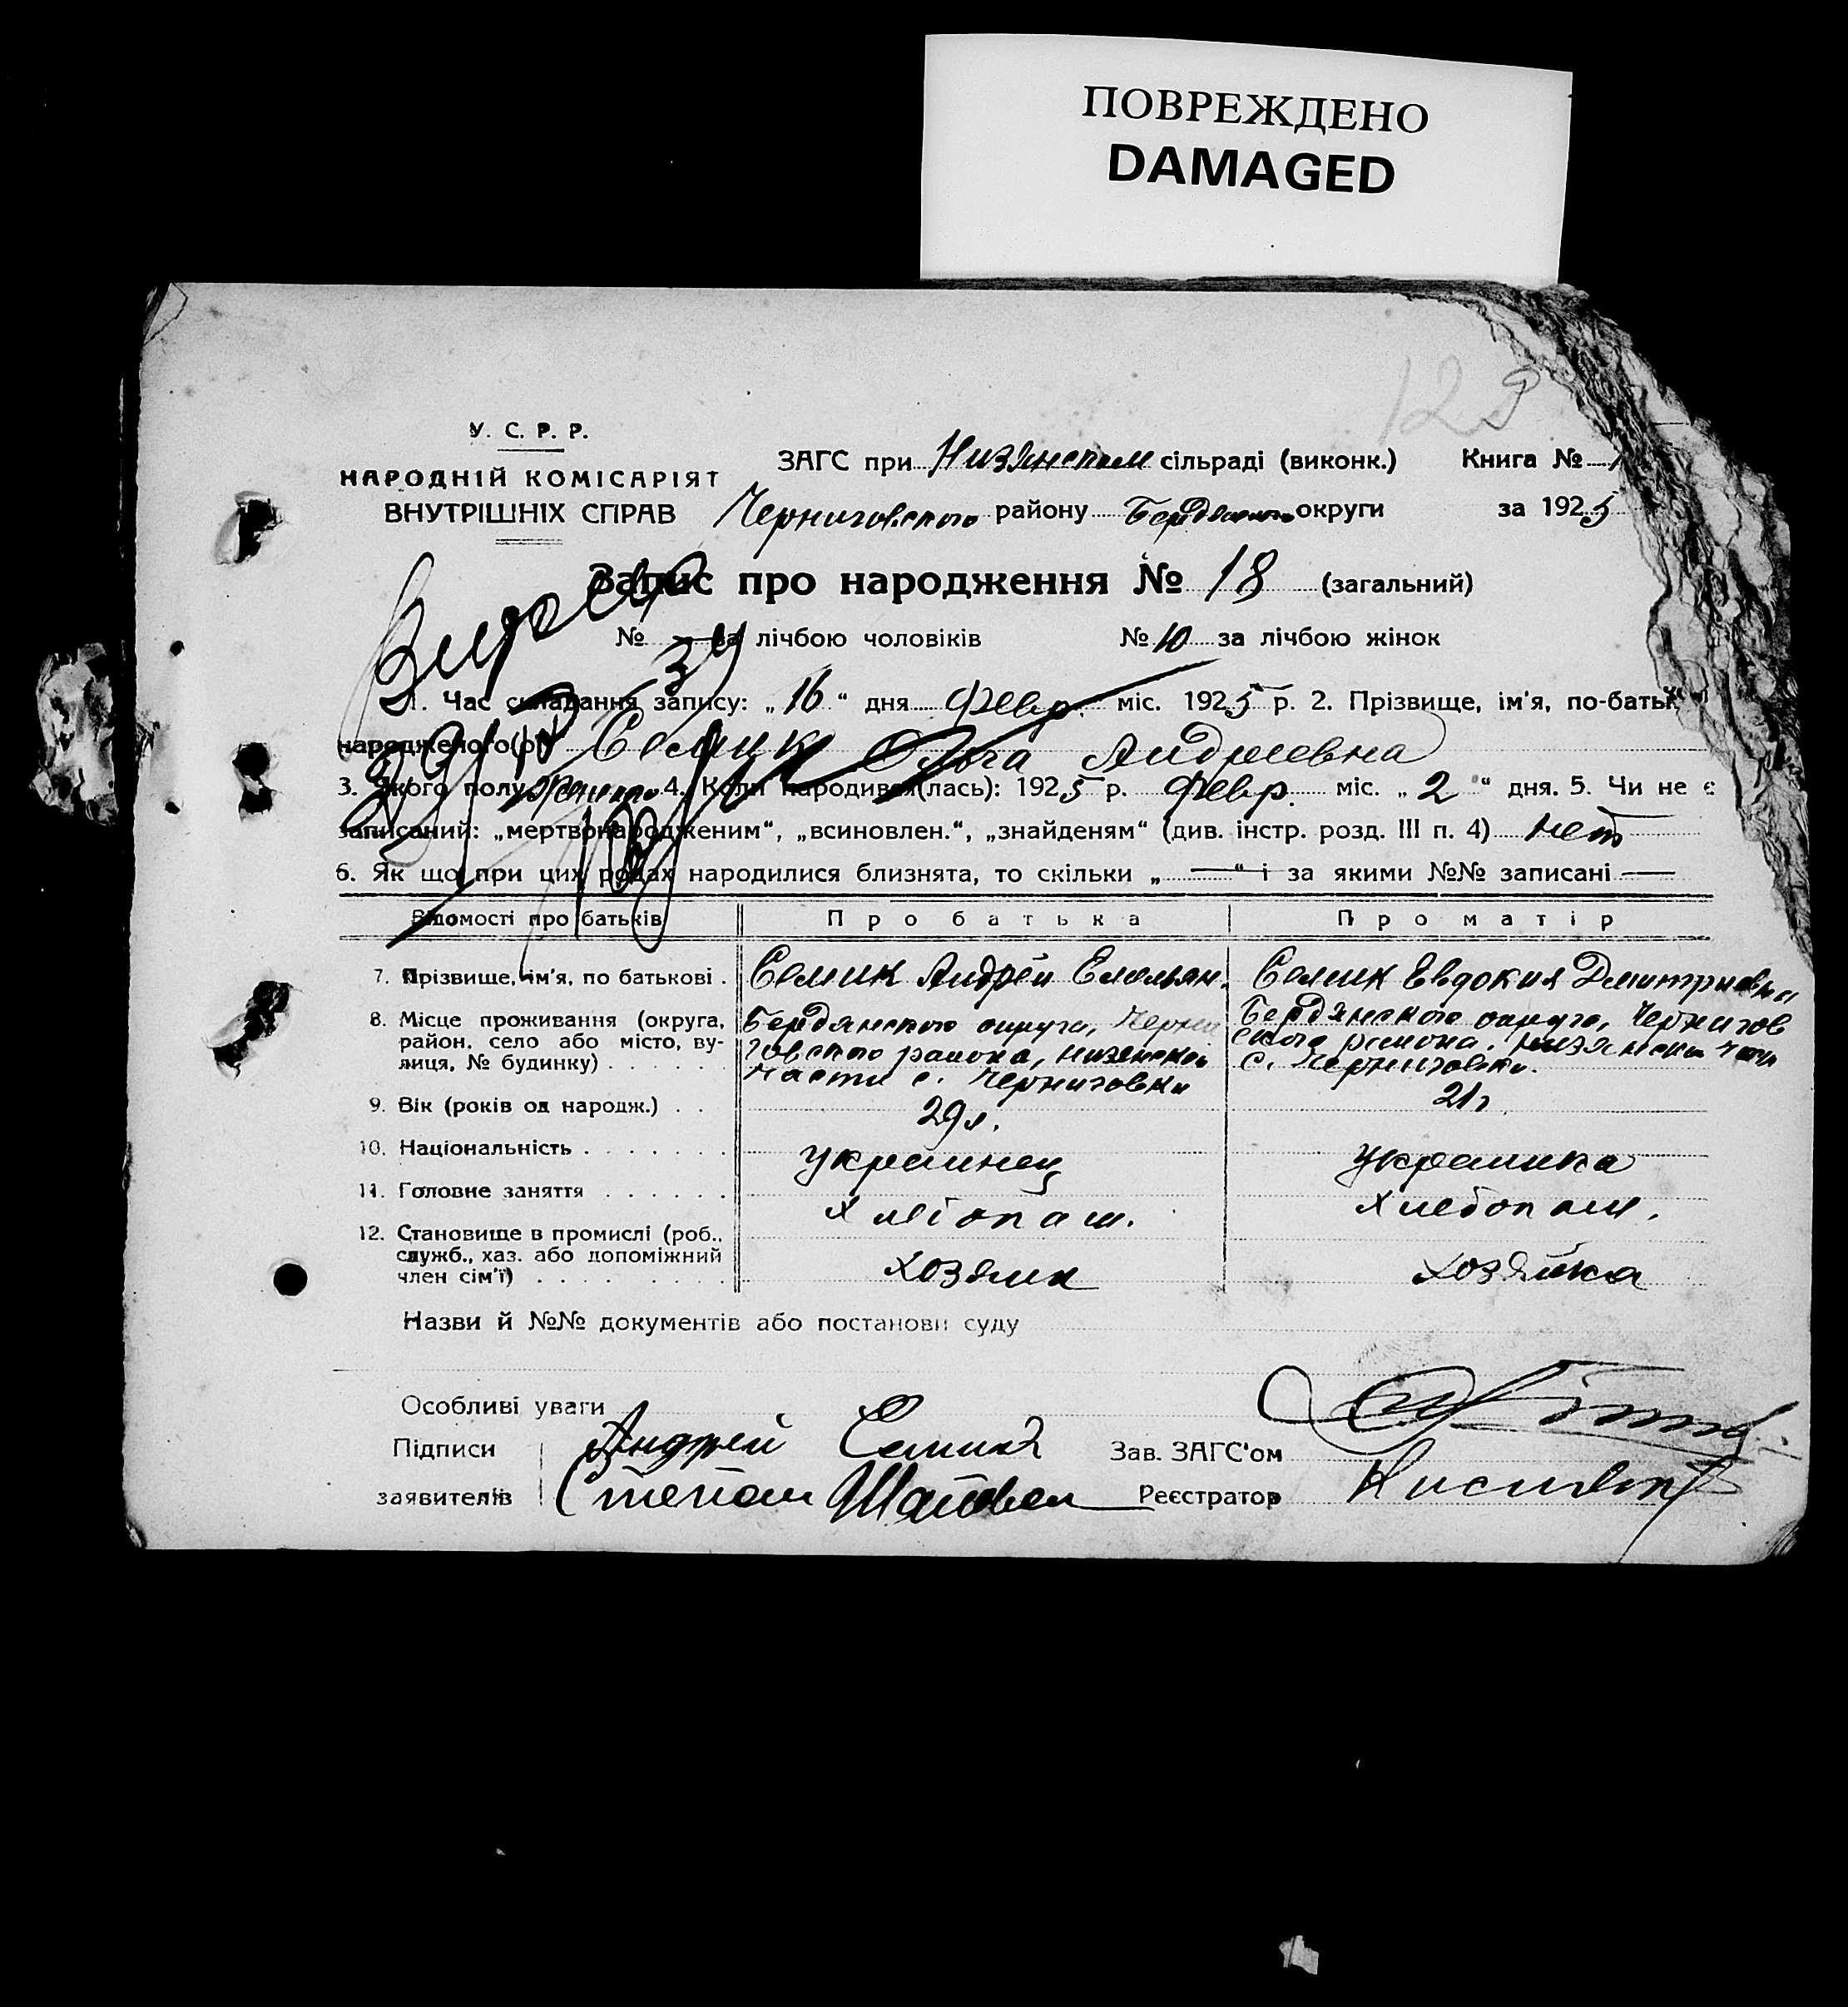 ПОВРЕЖДЕНО
DAMAGED
У. С. Р. Р.
НАРОДНІЙ КОМІСАРІЯТ
ВНУТРІШНІХ СПРАВ
ЗАГС при Низянском сільраді (виконк.) Книга №
Черниговского району Бердянского округи за 1925
Запис про народження № 18 (загальний)
№ — за лічбою чоловіків № 10 за лічбою жінок
1. Час складання запису: „16“ дня Февр. міс. 1925 р. 2. Прізвище, ім'я, по-батьк
народженого(ої) Семик Ольга Андреевна
3. Якого полу 4. Коли народився(лась): 1925 р. Февр. міс. „2“ дня. 5. Чи не є
записаний: „мертвонародженим“, „всиновлен.“, „знайденям“ (див. інстр. розд. III п. 4) нет
6. Як що при цих родах народилися близнята, то скільки „ — “ і за якими №№ записані —
Відомості про батьків Про батька Про матір
7. Прізвище, ім'я, по батькові . Семик Андрей Емельян. Семик Евдокия Дмитриевна
8. Місце проживання (округа, район, село або місто, вулиця, № будинку) . . . . . .
Бердянского округа, Черни
говского района, низянской
части с. Черниговки
Бердянского округа, Чернигов
ского района, низянской части
с. Черниговки.
9. Вік (років од народж.) . . 29 л. 21 г.
10. Національність . . . . . . . украинец украинка
11. Головне заняття . . . . . . хлебопаш. хлебопаш.
12. Становище в промислі (роб.,
служб., хаз. або допоміжний
член сім'ї) . . . . . . . . хозяин хозяйка
Назви й №№ документів або постанови суду
Особливі уваги
Підписи Андрей Семик Зав. ЗАГС'ом
заявителів Степан Реєстратор